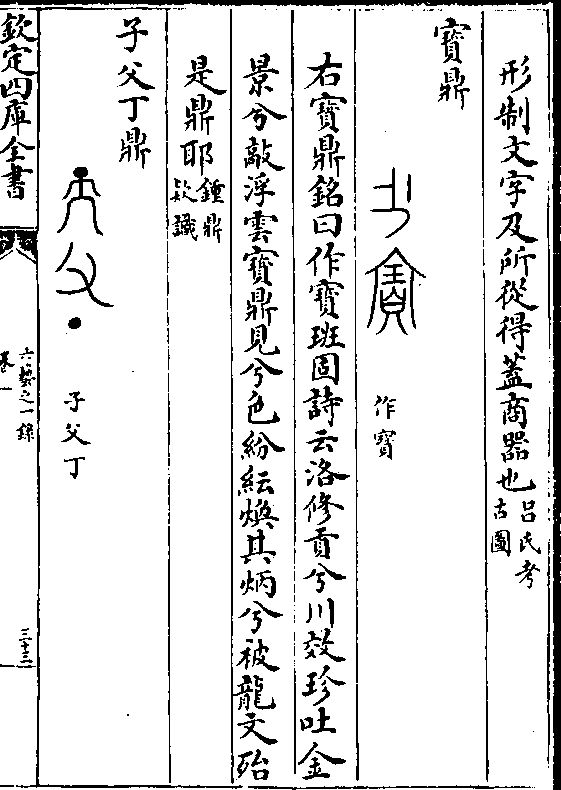 形制文字及所從得蓋商器也呂氏考古圖
寶鼎
作寶
右寶鼎銘曰作寶班固詩云洛修貢兮川效珍吐金
景兮敲浮雲寶鼎見兮色紛紜煥其炳兮被龍文殆
是鼎耶鍾鼎款識
子父丁鼎
子父丁
欽定四庫全書
六藝之一錄
卷一
三十三